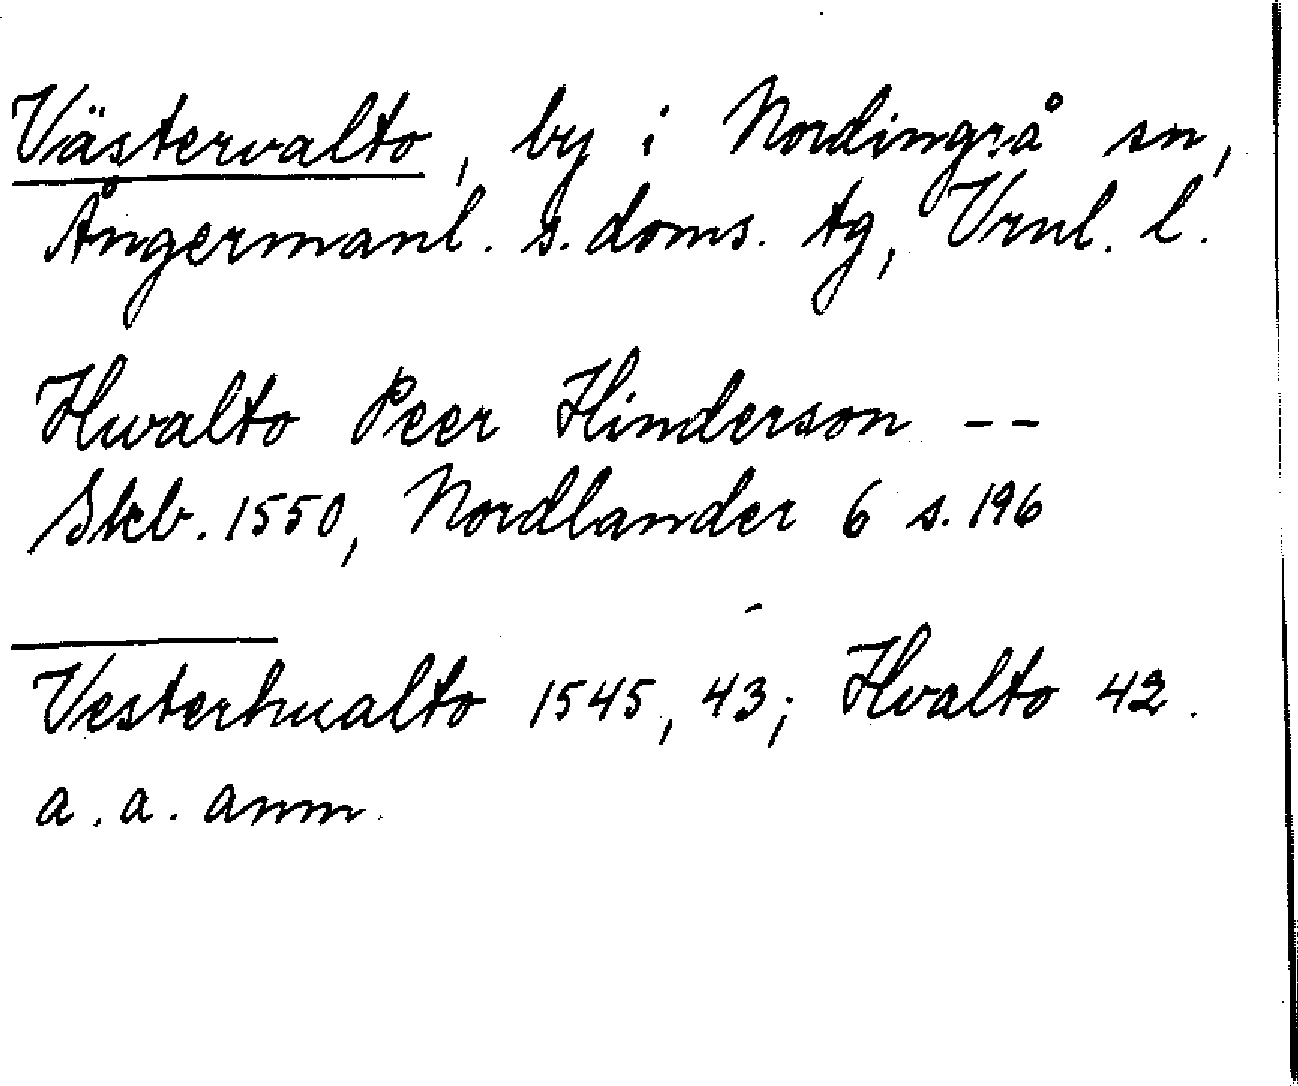 Västervalto, by i Nordingrå sn,
Ångermanl. s. doms. tg, Vrnl. l.
Hwalto Peer Hinderson --
Skb. 1550, Nordlander 6 s. 196
Vesterhualto 1545, 43; Hvalto 42.
a. a. anm.